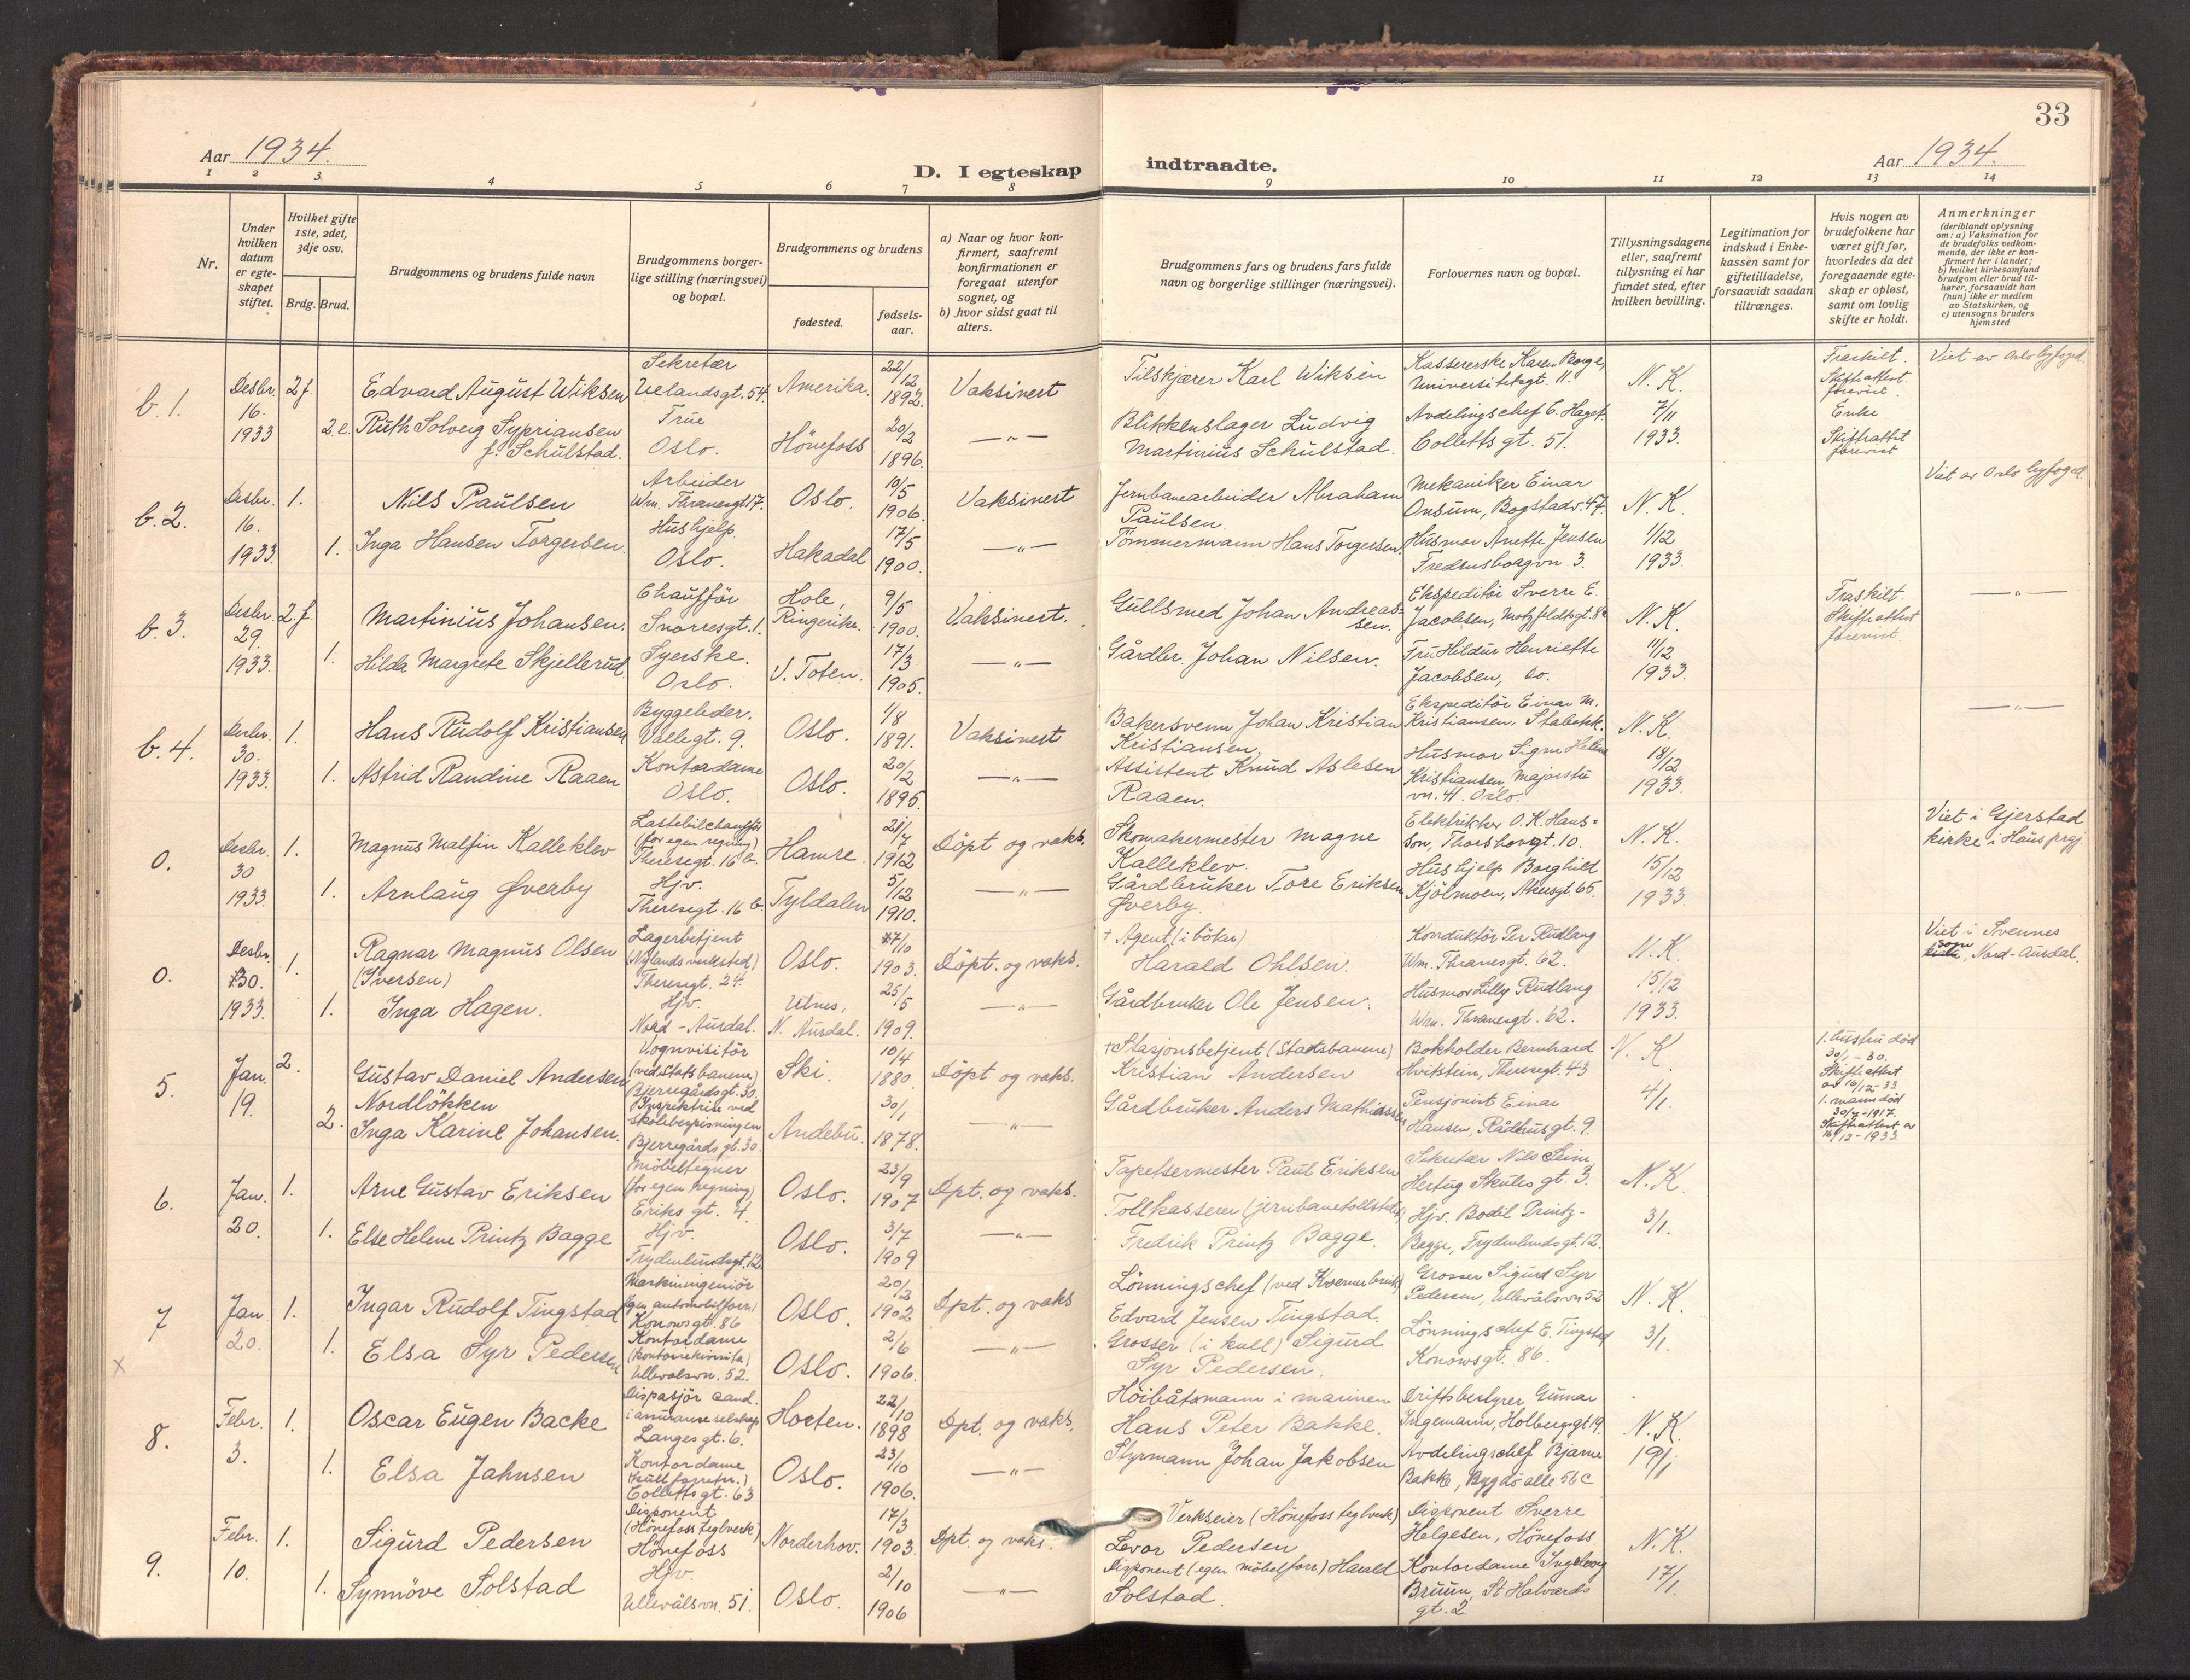 33
Aar 1934.
D. I egteskap indtraadte.
Aar 1934.
1 2 3 4 5 6 7 8 9 10 11 12 13 14
Nr.
Under hvilken datum er egteskapet stiftet.
Hvilket gifte 1ste, 2det, 3dje osv.
Brdg. Brud.
Brudgommens og brudens fulde navn
Brudgommens borgerlige stilling (næringsvei) og bopæl.
Brudgommens og brudens
fødested.
fødselsaar.
a) Naar og hvor konfirmert, saafremt konfirmationen er foregaat utenfor sognet, og
b) hvor sidst gaat til alters.
Brudgommens fars og brudens fars fulde navn og borgerlige stillinger (næringsvei).
Forlovernes navn og bopæl.
Tillysningsdagene eller, saafremt tillysning ei har fundet sted, efter hvilken bevilling.
Legitimation for indskud i Enkekassen samt for giftetilladelse, forsaavidt saadan tiltrænges.
Hvis nogen av brudefolkene har været gift før, hvorledes da det foregaaende egteskap er opløst, samt om lovlig skifte er holdt.
Anmerkninger
(deriblandt oplysning om: a) Vaksination for de brudefolks vedkommende, der ikke er konfirmert her i landet;
b) hvilket kirkesamfund brudgom eller brud tilhører, forsaavidt han (hun) ikke er medlem av Statskirken, og
c) utensogns bruders hjemsted
b. 1. Desbr. 16. 1933 2 f. Edvard August Wiksen Sekretær Uelandsgt. 54. Amerika. 22/12 1892. Vaksinert Tilskjærer Karl Wiksen Kassererske Karen Borge, Universitetsgt. 11. N. K. Fraskilt. Skifteattest forevist. Viet av Oslo byfoged.
2. e. Ruth Solveig Sypriansen f. Schulstad. Frue Oslo. Hönefoss 20/2 1896. —"— Blikkenslager Ludvig Martinius Schulstad. Avdelingschef C. Hagst. Colletts gt. 51. 7/11 1933. Enke Skifteattst forevist
b. 2. Desbr. 16. 1933. 1. Nils Paulsen Arbeider Wm. Thranesgt. 17. Oslo. 10/5 1906. Vaksinert Jernbanearbeider Abraham Paulsen. Mekaniker Einar Onsum, Bogstadv. 47. N. K. Viet av Oslo byfoged.
1. Inga Hansen Torgersen. Hushjelp. Oslo. Hakadal 17/5 1900. —"— Tömmermann Hans Torgersen. Husmor Anette Jensen Fredensborgvn. 3. 1/12 1933.
b. 3. Desbr. 29. 1933. 2. f. Martinius Johansen. Chaufför Snorresgt. 1. Hole, Ringerike. 9/5 1900. Vaksinert. Gullsmed Johan Andreassen. Ekspeditör Sverre E. Jacobsen, Motzfeldtsgt. 8c N. K. Fraskilt. Skifteattest forevist. —"—
1. Hilda Margrete Skjellerud. Syerske. Oslo. V. Toten. 17/3 1905. —"— Gårdbr. Johan Nilsen. Fru Hildur Henriette Jacobsen, do. 11/12 1933.
b. 4. Desbr. 30. 1933. 1. Hans Rudolf Kristiansen Byggeleder. Vallegt. 9. Oslo. 1/8 1891. Vaksinert Bakersvenn Johan Kristian Kristiansen, Ekspeditör Einar M. Kristiansen, Stabekk. N. K. —"—
1. Astrid Randine Raaen Kontordame Oslo. Oslo. 20/2 1895. —"— Assistent Knud Aslesen Raaen. Husmor Signe Helene Kristiansen, Majorstuvn. 41. Oslo. 18/12 1933.
0. Desbr. 30 1933. 1. Magnus Malfin Kalleklev Lastebilchaufför (for egen regning) Theresegt. 16 b. Hamre. 21/7 1912 Döpt og vaks. Skomakermester Magne Kalleklev. Elektriker O. K. Hansson, Thorshovgt. 10. N. K. Viet i Gjerstad kirke i Haus prgj.
1. Arnlaug Øverby Hjv. Theresegt. 16 b. Tyldalen 5/12 1910. —"— Gårdbruker Tore Eriksen Øverby. Hushjelp Borghild Kjölmoen, Akersgt. 65. 15/12 1933.
0. Desbr. 30. 1933. 1. Ragnar Magnus Olsen (Iversen) Lagerbetjent (Nylands verksted) Theresegt. 24. Oslo. 7/10 1903. Döpt. og vaks. + Agent (i böker) Harald Ohlsen. Konduktör Per Rudlang Wm. Thranesgt. 62. N. K. Viet i Svennes sogn, Nord-Aurdal.
1. Inga Hagen. Hjv. Nord-Aurdal. Ulnes, N. Aurdal. 25/5 1909. —"— Gårdbruker Ole Jensen. Husmor Lilly Rudlang Wm. Thranesgt. 62. 15/12 1933.
5. Jan. 19. 2. Gustav Daniel Andersen Nordlökken Vognvisitör (ved Statsbanene) Bjerregårdsgt. 30. Ski. 10/4 1880. Döpt og vaks. + Stasjonsbetjent (Statsbanene) Kristian Andersen Bokholder Bernhard Hvitstein, Theresegt. 43 N. K. 1. hustru död 30/1-30. Skifteattest av 16/12-33
2. Inga Karine Johansen. Inspektrise ved skolebespisningen Bjerregårds gt. 30. Andebu. 30/1 1878. —"— Gårdbruker Anders Mathiassen Pensjonist Einar Hansen, Rådhusgt. 9. 4/1. 1. mann död 30/7-1917. Skifteattest av 16/12-1933.
6. Jan. 20. 1. Arne Gustav Eriksen Möbeltegner (for egen regning) Eriks gt. 4. Oslo. 23/9 1907 Dpt. og vaks. Tapetsermester Paul Eriksen Sekretær Nils Seim Hertug Skules gt. 3. N. K.
1. Else Helene Printz Bagge Hjv. Frydenlundsgt. 12 Oslo. 3/7 1909 —"— Tollkasserer (jernbanetollsted) Fredrik Printz Bagge. Hjv. Bodil Printz-Bagge, Frydenlundsgt. 12. 3/1.
7 Jan 20. 1. Ingar Rudolf Tingstad Maskiningeniör (egen automobilforr.) Konowsgt. 86 Oslo. 20/3 1902 Dpt. og vaks Lönningschef (ved Kværner bruk) Edvard Jensen Tingstad. Grosser Sigurd Syr Pedersen, Ullevålsvn 52 N. K.
X 1. Elsa Syr Pedersen Kontordame Ullevalsvn. 52. Oslo. 2/6 1906. —"— Grosser (i kull) Sigurd Syr Pedersen. Lönningschef E. Tingstad Konowsgt. 86. 3/1.
8. Febr. 3. 1. Oscar Eugen Backe Dispasjör cand. i assuranseselskap Langes gt. 6. Horten. 22/10 1898 Dpt. og vaks. Höibåtsmann i marinen Hans Peter Bakke. Driftsbestyrer Gunnar Ingemann, Holbergsgt 19. N. K.
1. Elsa Jahnsen Kontordame Colletts gt. 63 Oslo. 23/10 1906. —"— Styrmann Johan Jakobsen Avdelingschef Bjarne Bakke, Bygdö alle 56 c 19/1.
9. Febr. 10. 1. Sigurd Pedersen Disponent (Hönefoss teglverk) Hönefoss Norderhov. 17/3 1903. Dpt. og vaks. Verkseier (Hönefoss teglverk) Levor Pedersen Disponent Sverre Helgesen, Hönefoss. N. K.
1. Synnöve Solstad Hjv. Ullevålsvn. 51. Oslo. 2/10 1906 —"— Disponent (egen möbelforr.) Harald Solstad. Kontordame Ingeborg Bruun, St Halvards gt. 2 17/1.